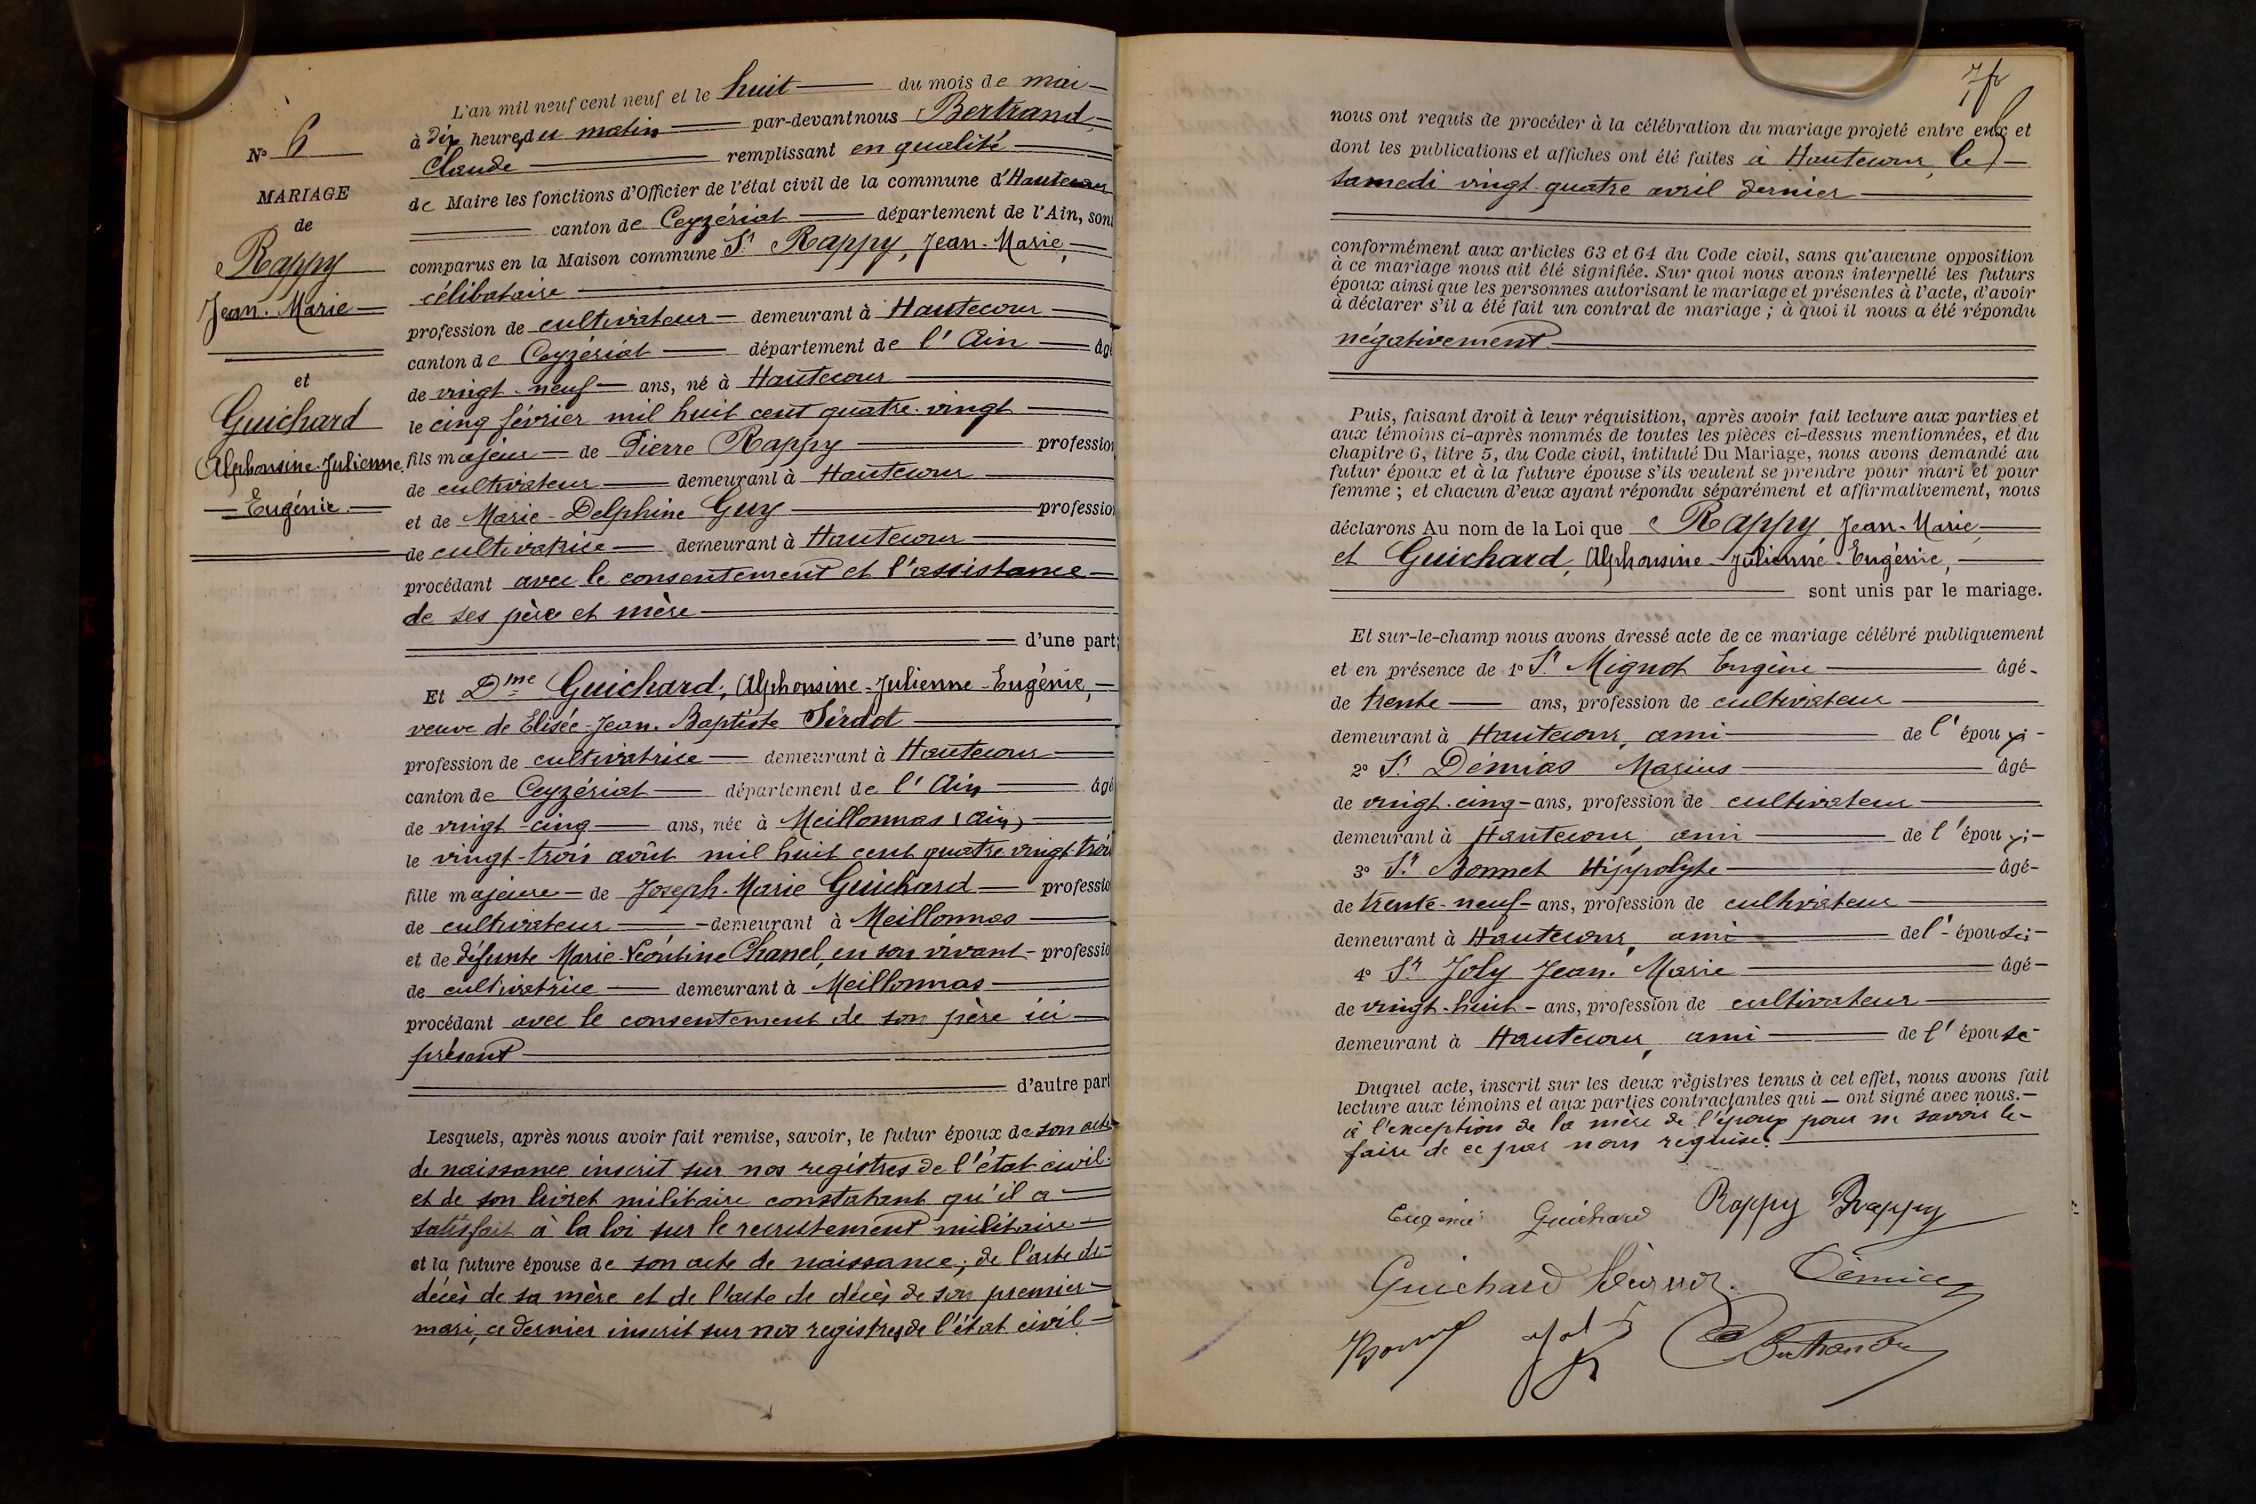 N° 6
MARIAGE
de
Rappy
Jean-Marie
et
Guichard
Alphonsine-Julienne
Eugénie
L'an mil neuf cent neuf et le huit du mois de mai
à dix heures du matin par-devant nous Bertrand
Claude remplissant en qualité
de Maire les fonctions d'Officier de l'état civil de la commune d'Hautecour
canton de Ceyzériat département de l'Ain, sont
comparus en la Maison commune Sr Rappy, Jean-Marie,
célibataire
profession de cultivateur demeurant à Hautecour
canton de Ceyzériat département de l'Ain âgé
de vingt-neuf ans, né à Hautecour
le cinq février mil huit cent quatre-vingt
fils majeur de Pierre Rappy profession
de cultivateur demeurant à Hautecour
et de Marie-Delphine Guy profession
de cultivatrice demeurant à Hautecour
procédant avec le consentement et l'assistance
de ses père et mère
d'une part;
Et Dme Guichard, Alphonsine-Julienne-Eugénie,
veuve de Elisée-Jean-Baptiste
profession de cultivatrice demeurant à Hautecour
canton de Ceyzériat département de l'Ain âgé
de vingt-cinq ans, née à Meillonnas (Ain)
le vingt-trois août mil huit cent quatre vingt-trois
fille majeure de Joseph-Marie Guichard professio
de cultivateur demeurant à Meillonnas
et de défunte Marie-Léontine Chanel, en son vivant professio
de cultivatrice demeurant à Meillonnas
procédant avec le consentement de son père ici
présent
d'autre part
Lesquels, après nous avoir fait remise, savoir, le futur époux de son acte
de naissance inscrit sur nos registres de l'état civil
et de son livret militaire constatant qu'il a
satisfait à la loi sur le recrutement militaire
et la future épouse de son acte de naissance; de l'acte de
décès de sa mère et de l'acte de décès de son premier
mari, ce dernier inscrit sur nos registres de l'état civil
nous ont requis de procéder à la célébration du mariage projeté entre eux et
dont les publications et affiches ont été faites à Hautecour, le
samedi vingt-quatre avril dernier
conformément aux articles 63 et 64 du Code civil, sans qu'aucune opposition
à ce mariage nous ait été signifiée. Sur quoi nous avons interpellé les futurs
époux ainsi que les personnes autorisant le mariage et présentes à l'acte, d'avoir
à déclarer s'il a été fait un contrat de mariage; à quoi il nous a été répondu
négativement
Puis, faisant droit à leur réquisition, après avoir fait lecture aux parties et
aux témoins ci-après nommés de toutes les pièces ci-dessus mentionnées, et du
chapitre 6, titre 5, du Code civil, intitulé Du Mariage, nous avons demandé au
futur époux et à la future épouse s'ils veulent se prendre pour mari et pour
femme; et chacun d'eux ayant répondu séparément et affirmativement, nous
déclarons Au nom de la Loi que Rappy, Jean-Marie,
et Guichard, Alphonsine-Julienne-Eugénie,
sont unis par le mariage.
Et sur-le-champ nous avons dressé acte de ce mariage célébré publiquement
et en présence de 1° Sr Mignot Eugène âgé
de trente ans, profession de cultivateur
demeurant à Hautecour, ami de l'époux;
2° Sr Démias Marius âgé
de vingt-cinq ans, profession de cultivateur
demeurant à Hautecour, ami de l'époux;
3° Sr Bonnet Hippolyte âgé
de trente-neuf ans, profession de cultivateur
demeurant à Hautecour, ami de l'épouse;
4° Sr Joly Jean-Marie âgé
de vingt-huit ans, profession de cultivateur
demeurant à Hautecour, ami de l'épouse
Duquel acte, inscrit sur les deux régistres tenus à cet effet, nous avons fait
lecture aux témoins et aux parties contractantes qui ont signé avec nous.
à l'exception de la mère de l'époux pour ne savoir le
faire de ce par nous requise.
Eugénie Guichard Rappy Rappy
Guichard
Bertrand